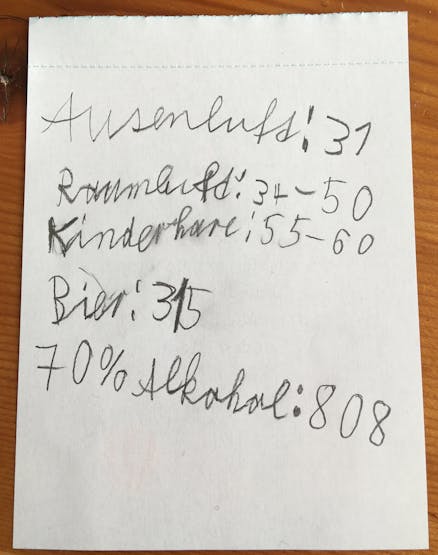 Ausenluft: 31
Raumluft: 34-50
Kinderhare: 55-60
Bier: 315
70% Alkohol: 808